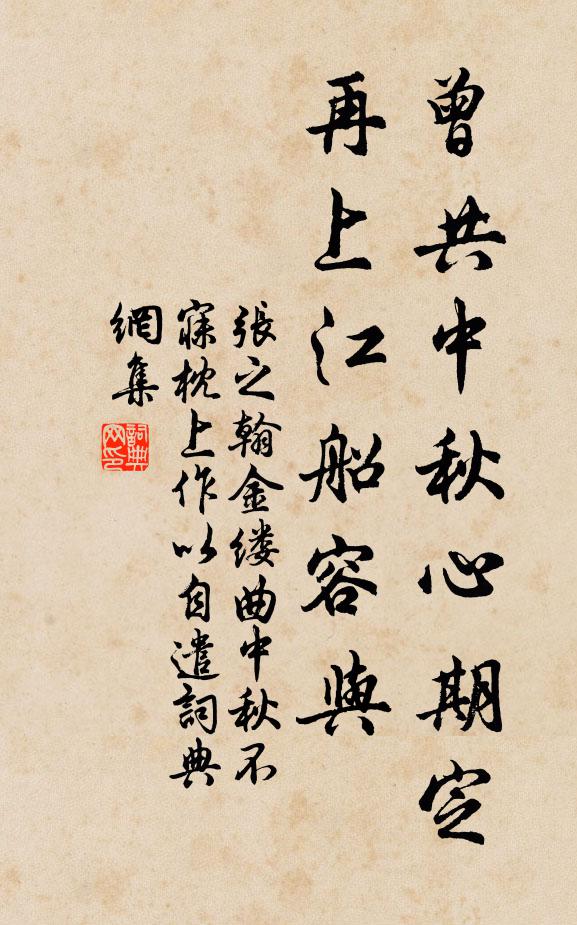 曾共中秋心期定
再上江船容與
張之翰金缕曲中秋不
寐枕上作以自遣詞典
網集
詞典
网印